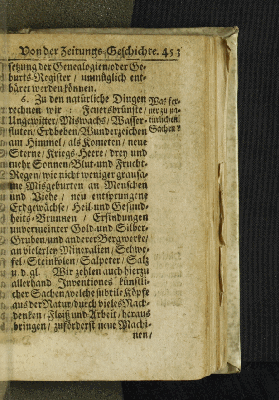 Von der Zeitungs-Geschichte. 453
setzung der Genealogien/oder Ge-
burts-Register / unmüglich ent-
bäret werden können.
6. Zu den natürliche Dingen
rechnen wir : Feuersbrünste/
Ungewitter/Miswachs/Wasser-
fluten/Erdbeben/Wunderzeichen
am Himmel/als Kometen/neue
Sterne/Kriegs-Heere/drey und
mehr Sonnen/Blut-und Frucht-
Regen/wie nicht weniger grausa-
me Misgeburten an Menschen
und Viehe / neu entsprungene
Erdgewächse/Heil-und Gesund-
heits-Brunnen / Erfindungen
unvermeinter Gold-und Silber-
Gruben/und anderer Bergwerke/
an vielerley Mineralien/Schwe-
fel/Steinkolen/Salpeter/Saltz
u.d.gl. Wir zehlen auch hierzu
allerhand Inventiones künstli-
cher Sachen/welche subtile Köpfe
aus der Natur/durch vieles Nach-
denken/Fleiß und Arbeit/heraus
bringen/zuförderst neue Machi-
nen/
Was fer-
ner zu na-
türlichen
Sachen?